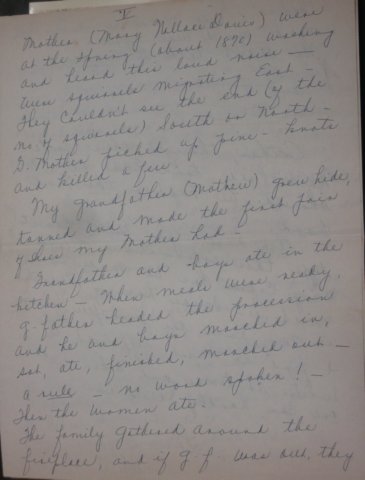 V
Mother (Mary Wallace Davis) were
at the Spring (about 1870) washing
and heard this loud noise —
were squirrels migrating East -
They couldn't see the end (of the
no. of squirrels) South or North -
G. Mother picked up pine-knots
and killed a few.
My grandfather (Mathew) grew hide,
tanned and made the first pair
of shoes my Mother had -
Grandfather and boys ate in the
kitchen - When meals were ready,
g. father headed the procession
and he and boys marched in,
sat, ate, finished, marched out -
a rule - no word spoken! -
Then the women ate.
The family gathered around the
fireplace, and if g.f. was out, they